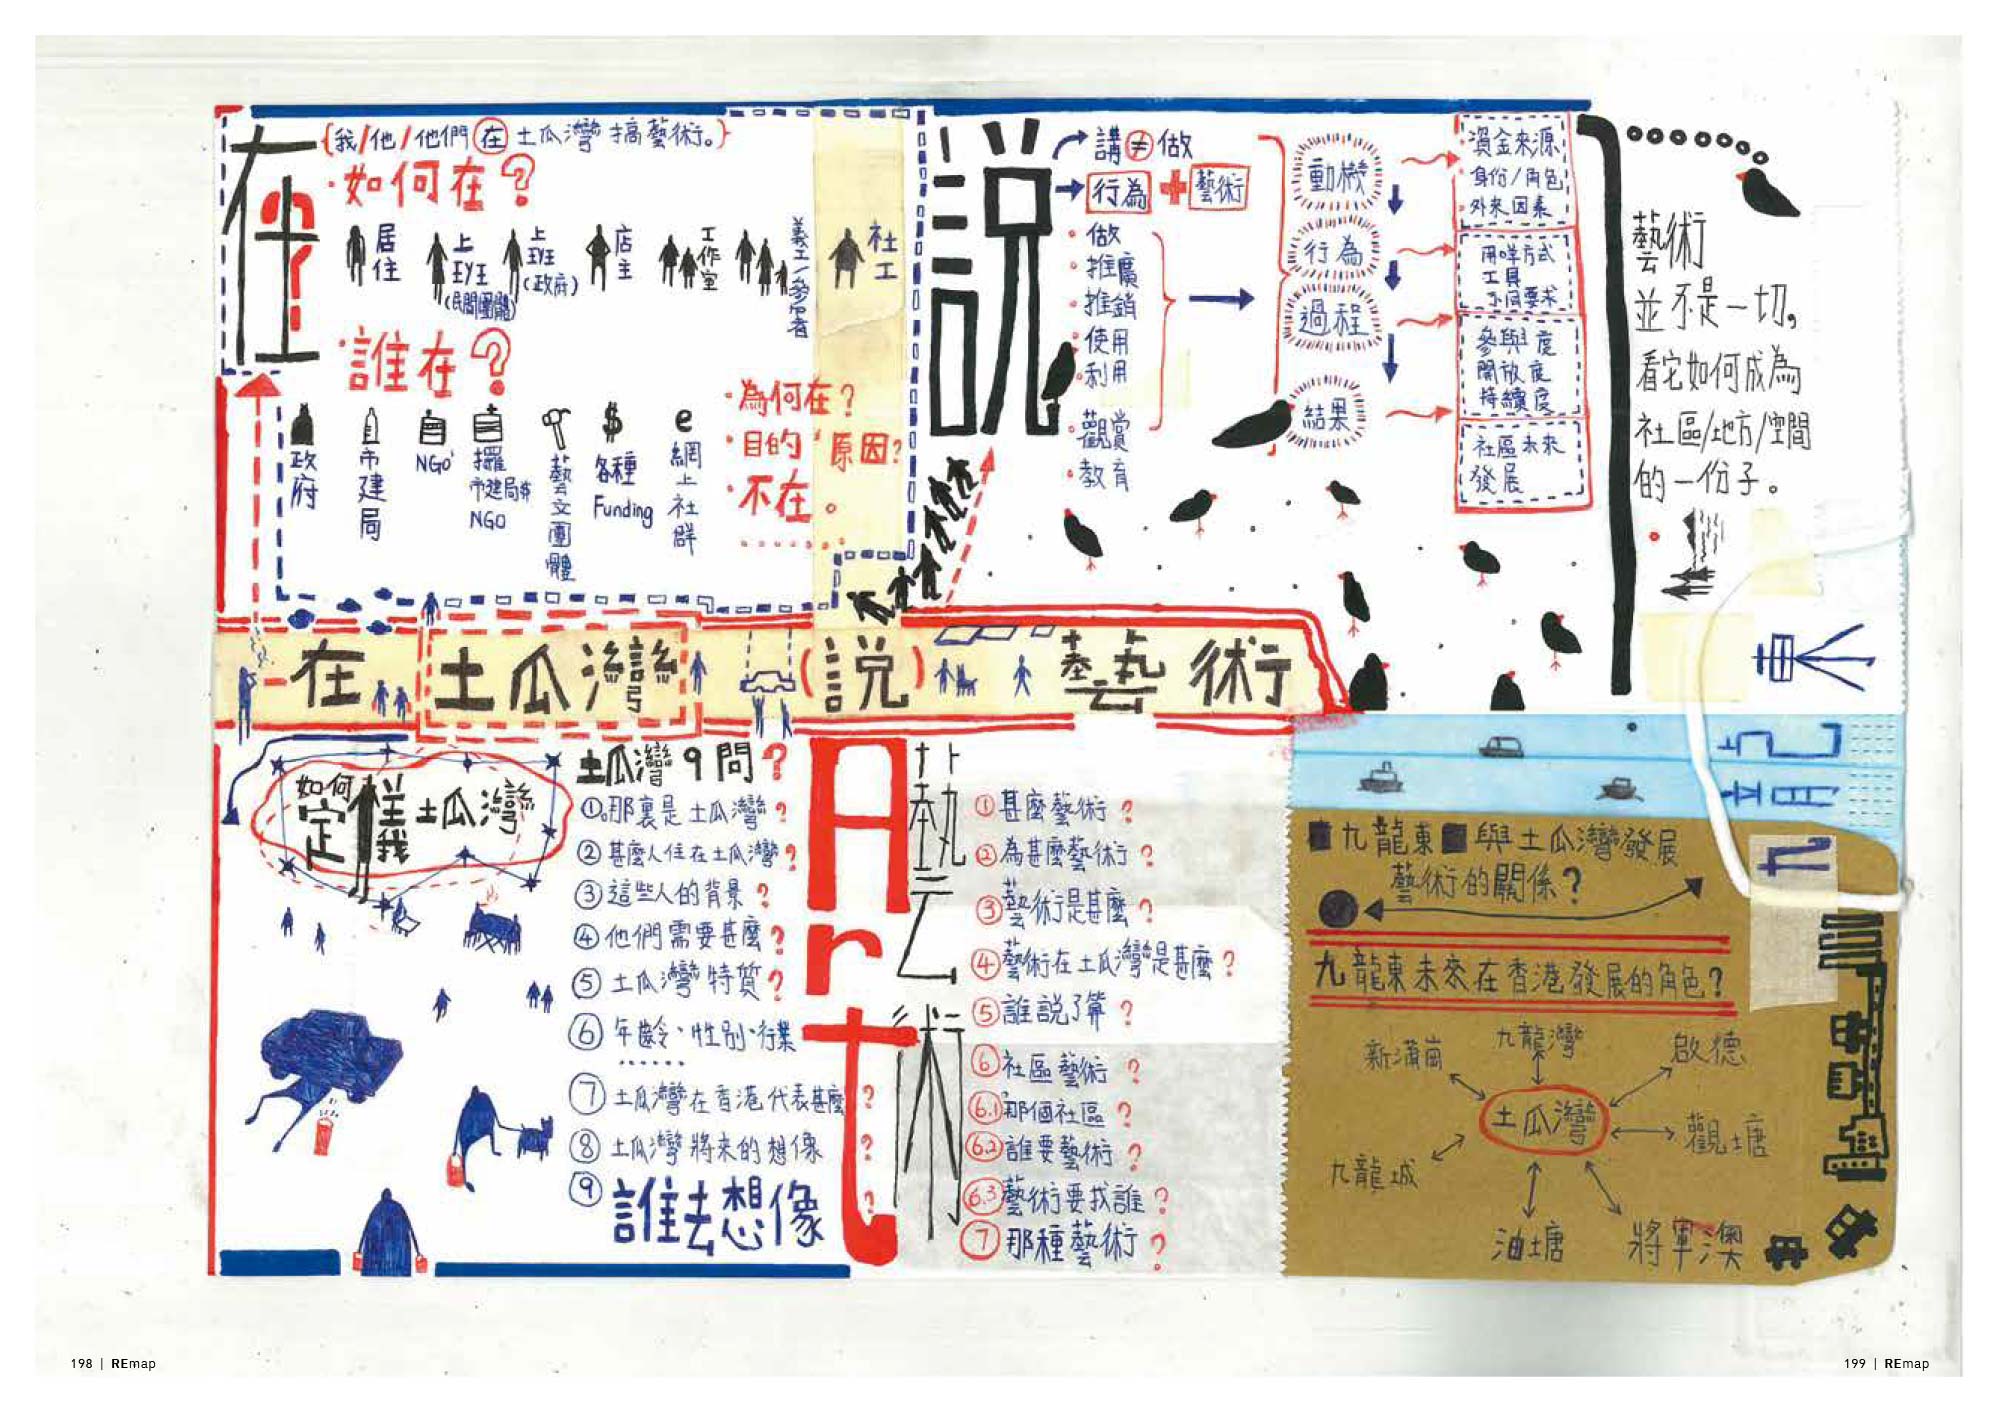 在
(我/他/他們在土瓜灣搞藝術。)
·如何在?
居住
上班
(民間團體)
上班
(政府)
店主
工作室
義工/參與者
社工
·誰在?
政府
市建局
NGO
攞市建局$ NGO
藝文團體
$
各種 Funding
e
網上社群
·為何在?
·目的 原因?
·不在。
說
講≠做
行為+藝術
·做
·推廣
·推銷
·使用
·利用
·觀賞
·教育
動機
行為
過程
結果
·資金來源
·身份/角色
·外來因素
用咩方式
工具
不同要求
參與度
開放度
持續度
社區未來
發展
藝術
並不是一切,
看它如何成為
社區/地方/空間
的一份子。
在土瓜灣(說)藝術
如何
定義土瓜灣
土瓜灣9問?
①那裏是土瓜灣?
②甚麼人住在土瓜灣?
③這些人的背景?
④他們需要甚麼?
⑤土瓜灣特質?
⑥年齡、性別、行業
……
⑦土瓜灣在香港代表甚麼?
⑧土瓜灣將來的想像?
⑨誰去想像?
Art
藝術
①甚麼藝術?
②為甚麼藝術?
③藝術是甚麼?
④藝術在土瓜灣是甚麼?
⑤誰說了算?
⑥社區藝術?
6.1那個社區?
6.2誰要藝術?
6.3藝術要找誰?
⑦那種藝術?
九龍東與土瓜灣發展
藝術的關係?
九龍東未來在香港發展的角色?
新蒲崗
九龍灣
啟德
土瓜灣
觀塘
九龍城
油塘
將軍澳
198 | REmap
199 | REmap